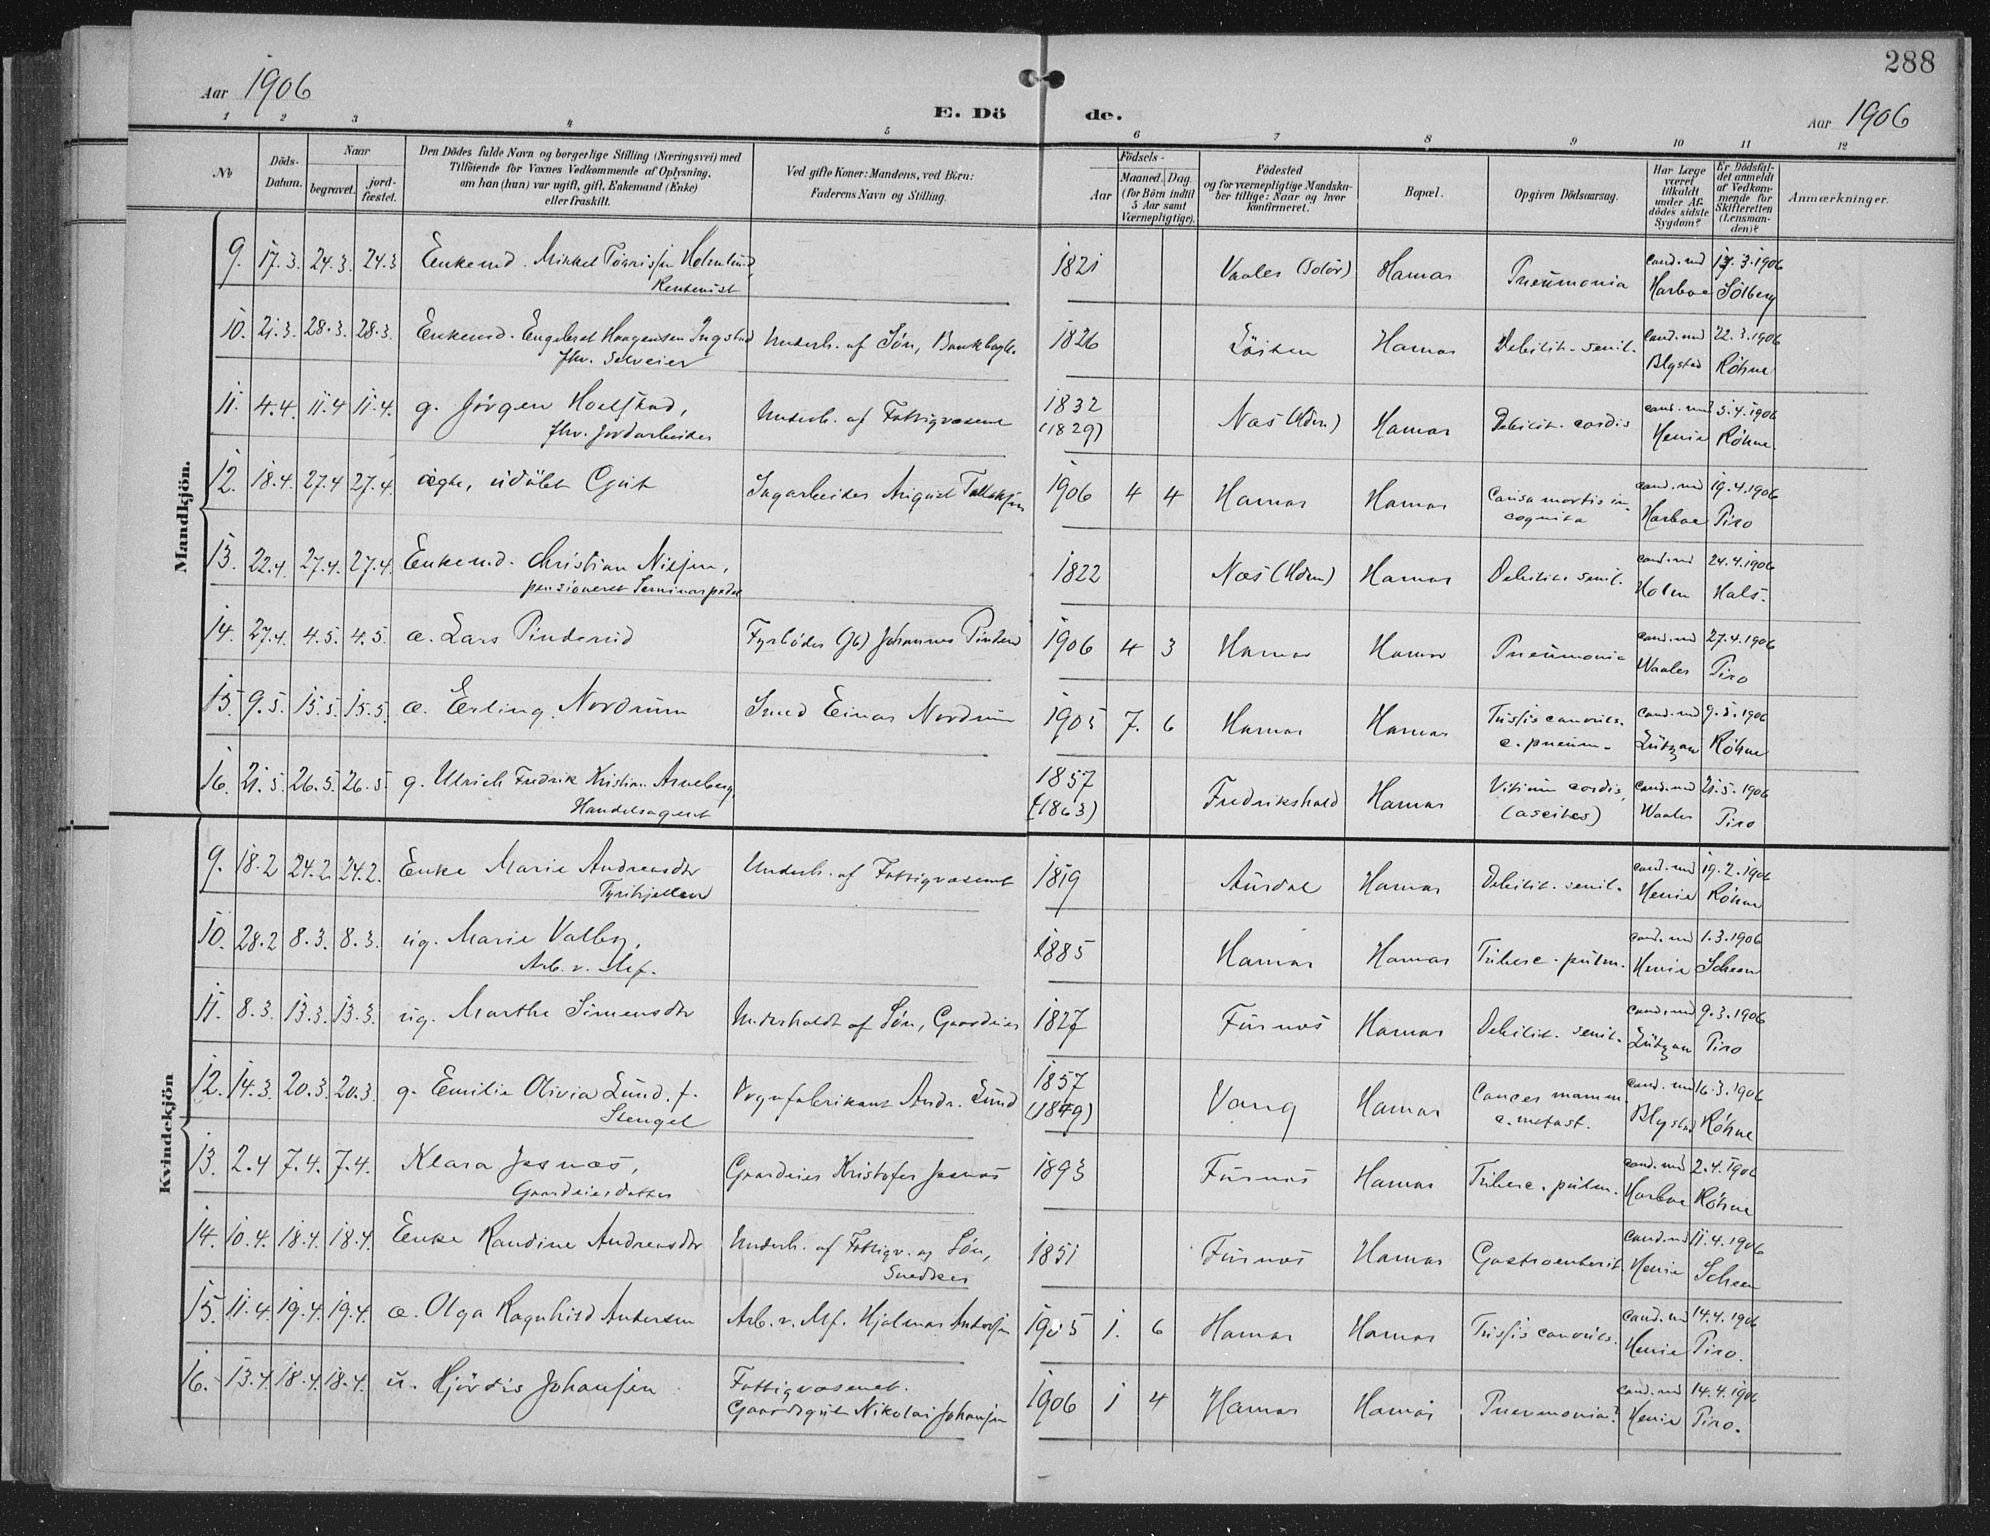 288
Aar 1906
E. Dö de.
Aar 1906
1 2 3 4 5 6 7 8 9 10 11 12
No
Döds-Datum.
Naar
begravet.
jord-fæstet.
Den Dödes fulde Navn og borgerlige Stilling (Næringsvei) med
Tilföiende for Voxnes Vedkommende af Oplysning,
om han (hun) var ugift, gift, Enkemand (Enke)
eller fraskilt.
Ved gifte Koner: Mandens, ved Börn:
Faderens Navn og Stilling.
Födsels-
Aar
Maaned. Dag
(for Börn indtil
5 Aar samt
Værnepligtige).
Födested
og for værnepligtige Mandska-
ber tillige: Naar og hvor
konfirmeret.
Bopæl.
Opgiven Dödsaarsag.
Har Læge
været
tilkaldt
under Af-
dödes sidste
Sygdom?
Er Dödsfal-
det anmeldt
af Vedkom-
mende for
Skifteretten
(Lensman-
den)?
Anmærkninger.
Mandkjön.
9. 17.3. 24.3. 24.3 Enkemd. Mikkel Tørrisen Holmlund, 1821 Vaaler (Solør) Hamar Pneumonia cand. med 17.3.1906
Rentenist Harboe Solberg
10. 21.3. 28.3. 28.3. Enkemd. Engebret Haagensen Ingstad Underh. af Søn, Bankbogh. 1826 Løiten Hamar Debilit. senil. cand. med 22.3.1906
fhv. Selveier Blystad Röhne
11. 4.4. 11.4 11.4. g. Jørgen Hoelstad, Underh. af Fattigvæsenet 1832 Næs (Hdm.) Hamar Debilit. cordis cand. med 5.4.1906
fhv. Jordarbeider (1829) Henie Röhne
12. 18.4. 27.4 27.4. ægte, udöbt Gut Sagarbeider August Tollefsen 1906 4 4 Hamar Hamar Causa mortis in- cand. med 19.4.1906
cognita Harboe Piro
13. 22.4. 27.4. 27.4. Enkemd. Christian Nilsen, 1822 Næs (Hdm) Hamar Debilit. senil. cand. med 24.4.1906
pensioneret Seminarpedel Holm Hals.
14. 27.4. 4.5. 4.5. æ. Lars Pinderud Fyrbøder (Jb) Johannes Pinderud 1906 4 3 Hamar Hamar Pneumonia cand. med 27.4.1906
Waaler Piro
15. 9.5. 15.5. 15.5. æ. Erling Nordrum Smed Einar Nordrum 1905 7. 6 Hamar Hamar Tussis convuls. cand. med 9.5.1906
c. pneum. Lützow Röhne
16. 21.5. 26.5. 26.5 g. Ulrich Fredrik Kristian Arneberg, 1857 Fredrikshald Hamar Vitium cordis, cand. med 21.5.1906
Handelsagent (1863) (ascites) Waaler Piro
Kvindekjön
9. 18.2 24.2. 24.2. Enke Marie Andreasdtr Underh. af Fattigvæsenet 1819 Aurdal Hamar Debilit. senil. cand. med 19.2.1906
Tyrihjellen Henie Röhne
10. 28.2 8.3. 8.3. ug. Marie Valby, 1885 Hamar Hamar Tuberc. pulm. cand. med 1.3.1906
Arb. v. Mf. Henie Scheen
11. 8.3. 13.3. 13.3. ug. Marthe Simensdtr Underholdt af Søn, Gaardeier 1827 Furnæs Hamar Debilit. senil. cand. med 9.3.1906
Lützow Piro
12. 14.3. 20.3. 20.3 g. Emilie Olivia Lund. f. Vognfabrikant Andr. Lund 1857 Vang Hamar Cancer mamm. cand. med 16.3.1906
Stengel (1849) c. metast. Blystad Röhne
13. 2.4 7.4. 7.4. Klara Jesnæs, Gaardeier Kristofer Jesnæs 1893 Furnæs Hamar Tuberc. pulm. cand. med 2.4.1906
Gaardeierdatter Harboe Röhne
14. 10.4. 18.4. 18.4. Enke Randine Andreasdtr Underh. af Fattigv. og Søn, 1851 Furnæs Hamar Gastroenterit. cand. md 11.4.1906
Snedker Henie Scheen
15. 11.4. 19.4. 19.4. æ. Olga Ragnhild Andersen Arb. v. Mf. Hjalmar Andersen 1905 1. 6 Hamar Hamar Tussis convuls. cand. md 14.4.1906
Henie Piro.
16. 13.4. 18.4. 18.4. u. Hjördis Johansen Fattigvæsenet. 1906 1 4 Hamar Hamar Pneumonia? cand. md 14.4.1906
Gaardsgut Nikolai Johansen Henie Piro.